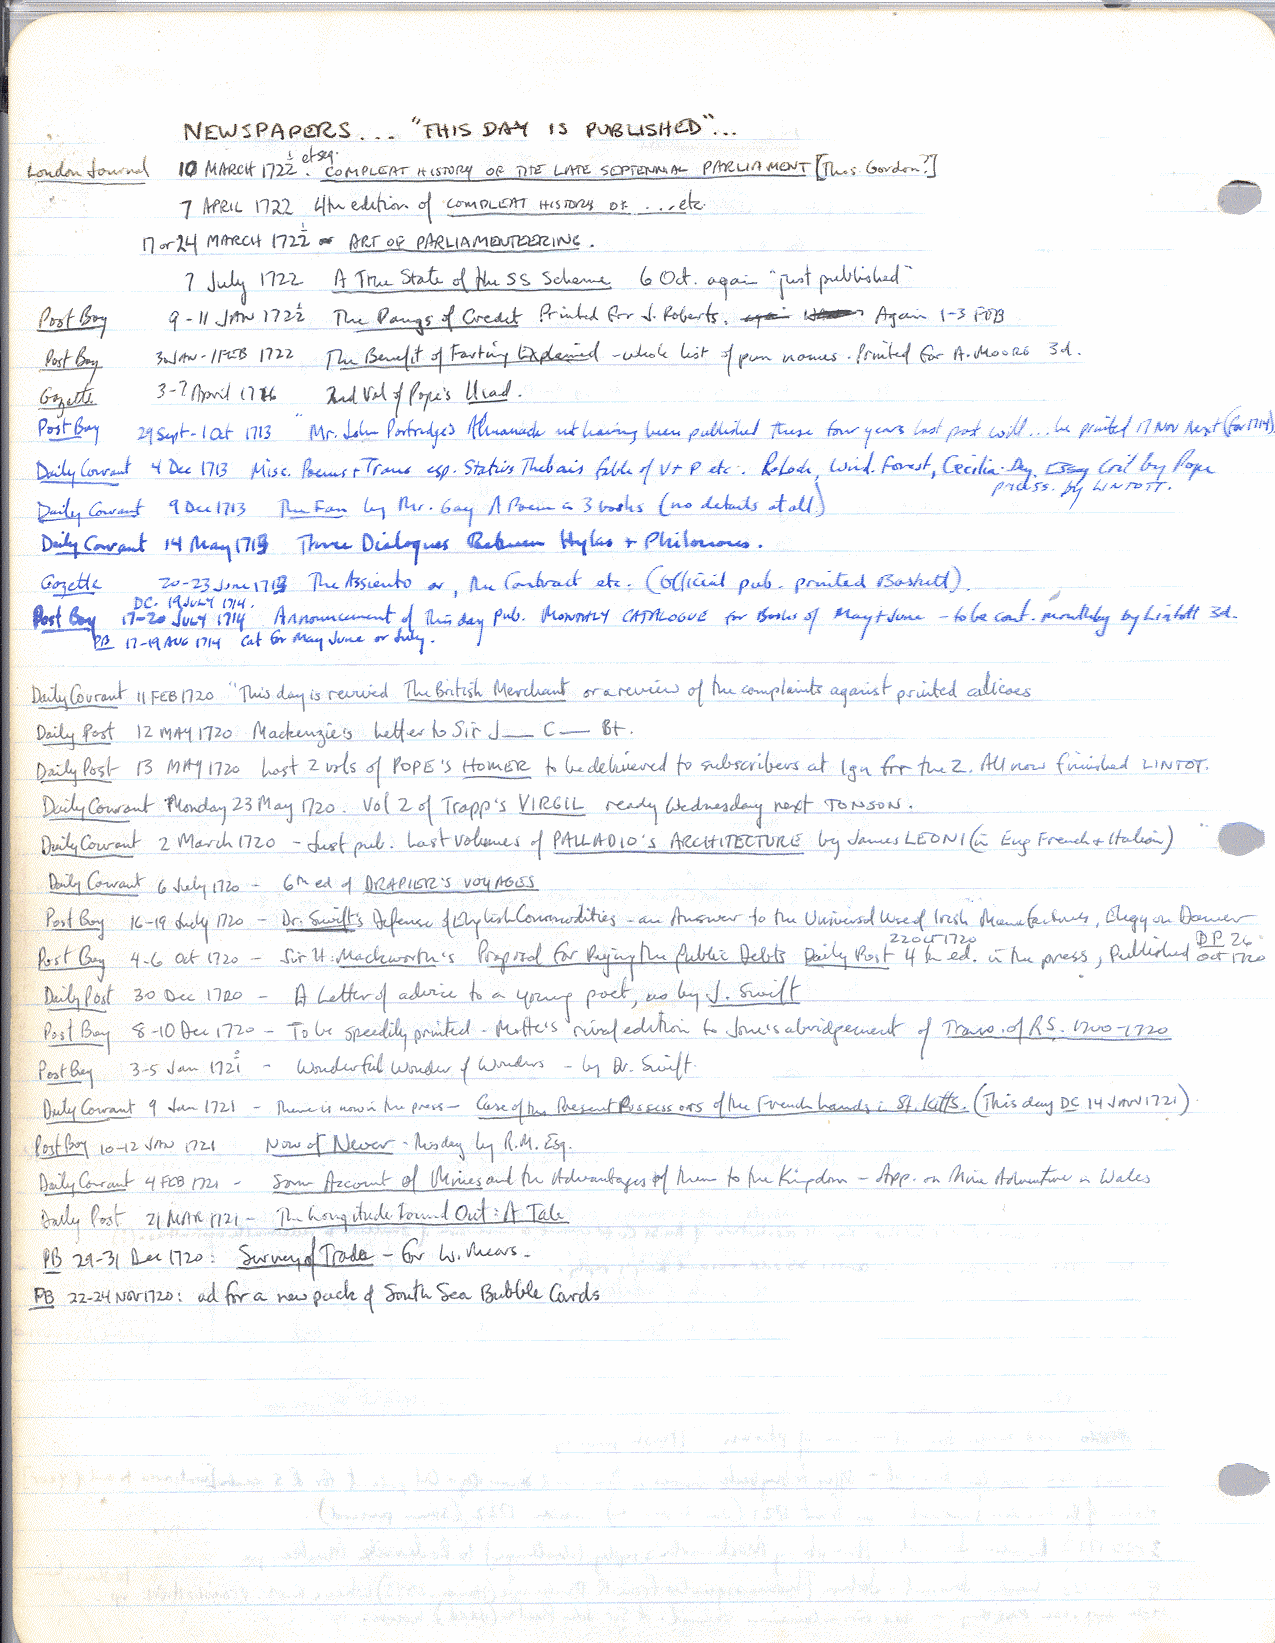 NEWSPAPERS... "THIS DAY IS PUBLISHED"...
London Journal 10 MARCH 172½ et seq. COMPLEAT HISTORY OF THE LATE SEPTENNIAL PARLIAMENT [Thos. Gordon?]
7 APRIL 1722 4th edition of COMPLEAT HISTORY OF ... etc.
17 or 24 MARCH 172½ ART OF PARLIAMENTEERING.
7 July 1722 A True State of the SS Scheme 6 Oct. again "just published"
Post Boy 9-11 JAN 172½ The Pangs of Credit Printed for J. Roberts. Again 1-3 FEB
Post Boy 30 JAN - 1 FEB 1722 The Benefit of Farting Explained - whole list of pun names. Printed for A. MOORE 3d.
Gazette 3-7 April 1716 2nd Vol of Pope's Iliad.
Post Boy 29 Sept - 1 Oct 1713 "Mr. John Partridge's Almanack not having been published these four years last past will... be printed 17 Nov Next (for 1714)
Daily Courant 4 Dec 1713 Misc. Poems + Trans esp. Statius Thebais fable of V + P etc. Roflock, Wind. Forest, Cecilia Day, Essay Crit by Pope
process. by LINTOTT.
Daily Courant 9 Dec 1713 The Fan by Mr. Gay A Poem in 3 books (no details at all)
Daily Courant 14 May 1713 Three Dialogues Between Hylas + Philonous.
Gazette 20-23 June 1713 The Assiento or, the Contract etc. (official pub. printed Baskett).
DC. 19 JULY 1714.
Post Boy 17-20 JULY 1714 Announcement of this day pub. MONTHLY CATALOGUE for Books of May + June - to be cont. monthly by Lintott 3d.
PB 17-19 AUG 1714 Cat for May June or July.
Daily Courant 11 FEB 1720 "This day is revived The British Merchant or a review of the complaints against printed calicoes
Daily Post 12 MAY 1720 Mackenzie's Letter to Sir J— C— Bt.
Daily Post 13 MAY 1720 Last 2 vols of POPE'S HOMER to be delivered to subscribers at 1gn for the 2. All now finished LINTOT.
Daily Courant Monday 23 May 1720. Vol 2 of Trapp's VIRGIL ready Wednesday next TONSON.
Daily Courant 2 March 1720 - Just pub. Last volumes of PALLADIO'S ARCHITECTURE by James LEONI (in Eng French + Italian)
Daily Courant 6 July 1720 - 6th ed of DRAPIER'S VOYAGES
Post Boy 16-19 July 1720 - Dr. Swift's Defense of English Commodities - an Answer to the Universal Use of Irish Manufactures, Elegy on Demer
22 OCT 1720 DP 26
Post Boy 4-6 Oct 1720 - Sir H. Mackworth's Proposal for Paying the Public Debts Daily Post 4th ed. in the press, Published Oct 1720
Daily Post 30 Dec 1720 - A Letter of advice to a young poet, as by J. Swift
Post Boy 8-10 Dec 1720 - To be speedily printed - Motte's rival edition to Jone's abridgement of Trans. of RS. 1700-1720
Post Boy 3-5 Jan 172⁰⁄₁ - Wonderful Wonder of Wonders - by Dr. Swift.
Daily Courant 9 Jan 1721 - There is now in the press - Case of the Present Possessors of the French lands in St. Kitts. (This day DC 14 JAN 1721)
Post Boy 10-12 JAN 1721 Now of Never - this day by R.M. Esq.
Daily Courant 4 FEB 1721 - Some Account of Mines and the Advantages of them to the Kingdom - App. on Mine Adventure in Wales
Daily Post 21 MAR 1721 - The Longitude Found Out: A Tale
PB 29-31 Dec 1720: Survey of Trade - for W. Mears.
PB 22-24 NOV 1720: ad for a new pack of South Sea Bubble Cards